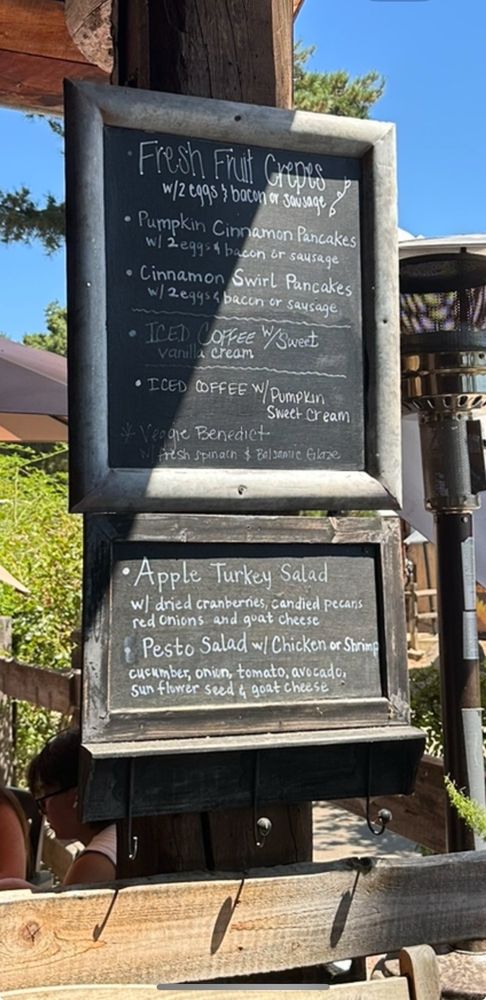 Fresh Fruit Crepes
w/2 eggs & bacon or sausage
• Pumpkin Cinnamon Pancakes
w/ 2 eggs & bacon or sausage
• Cinnamon Swirl Pancakes
w/ 2 eggs & bacon or sausage
• ICED COFFEE W/Sweet
vanilla cream
• ICED COFFEE W/Pumpkin
Sweet Cream
Veggie Benedict
w/ fresh spinach & Balsamic Glaze
• Apple Turkey Salad
w/ dried cranberries, candied pecans
red onions and goat cheese
Pesto Salad w/ Chicken or Shrimp
cucumber, onion, tomato, avocado,
sun flower seed & goat cheese